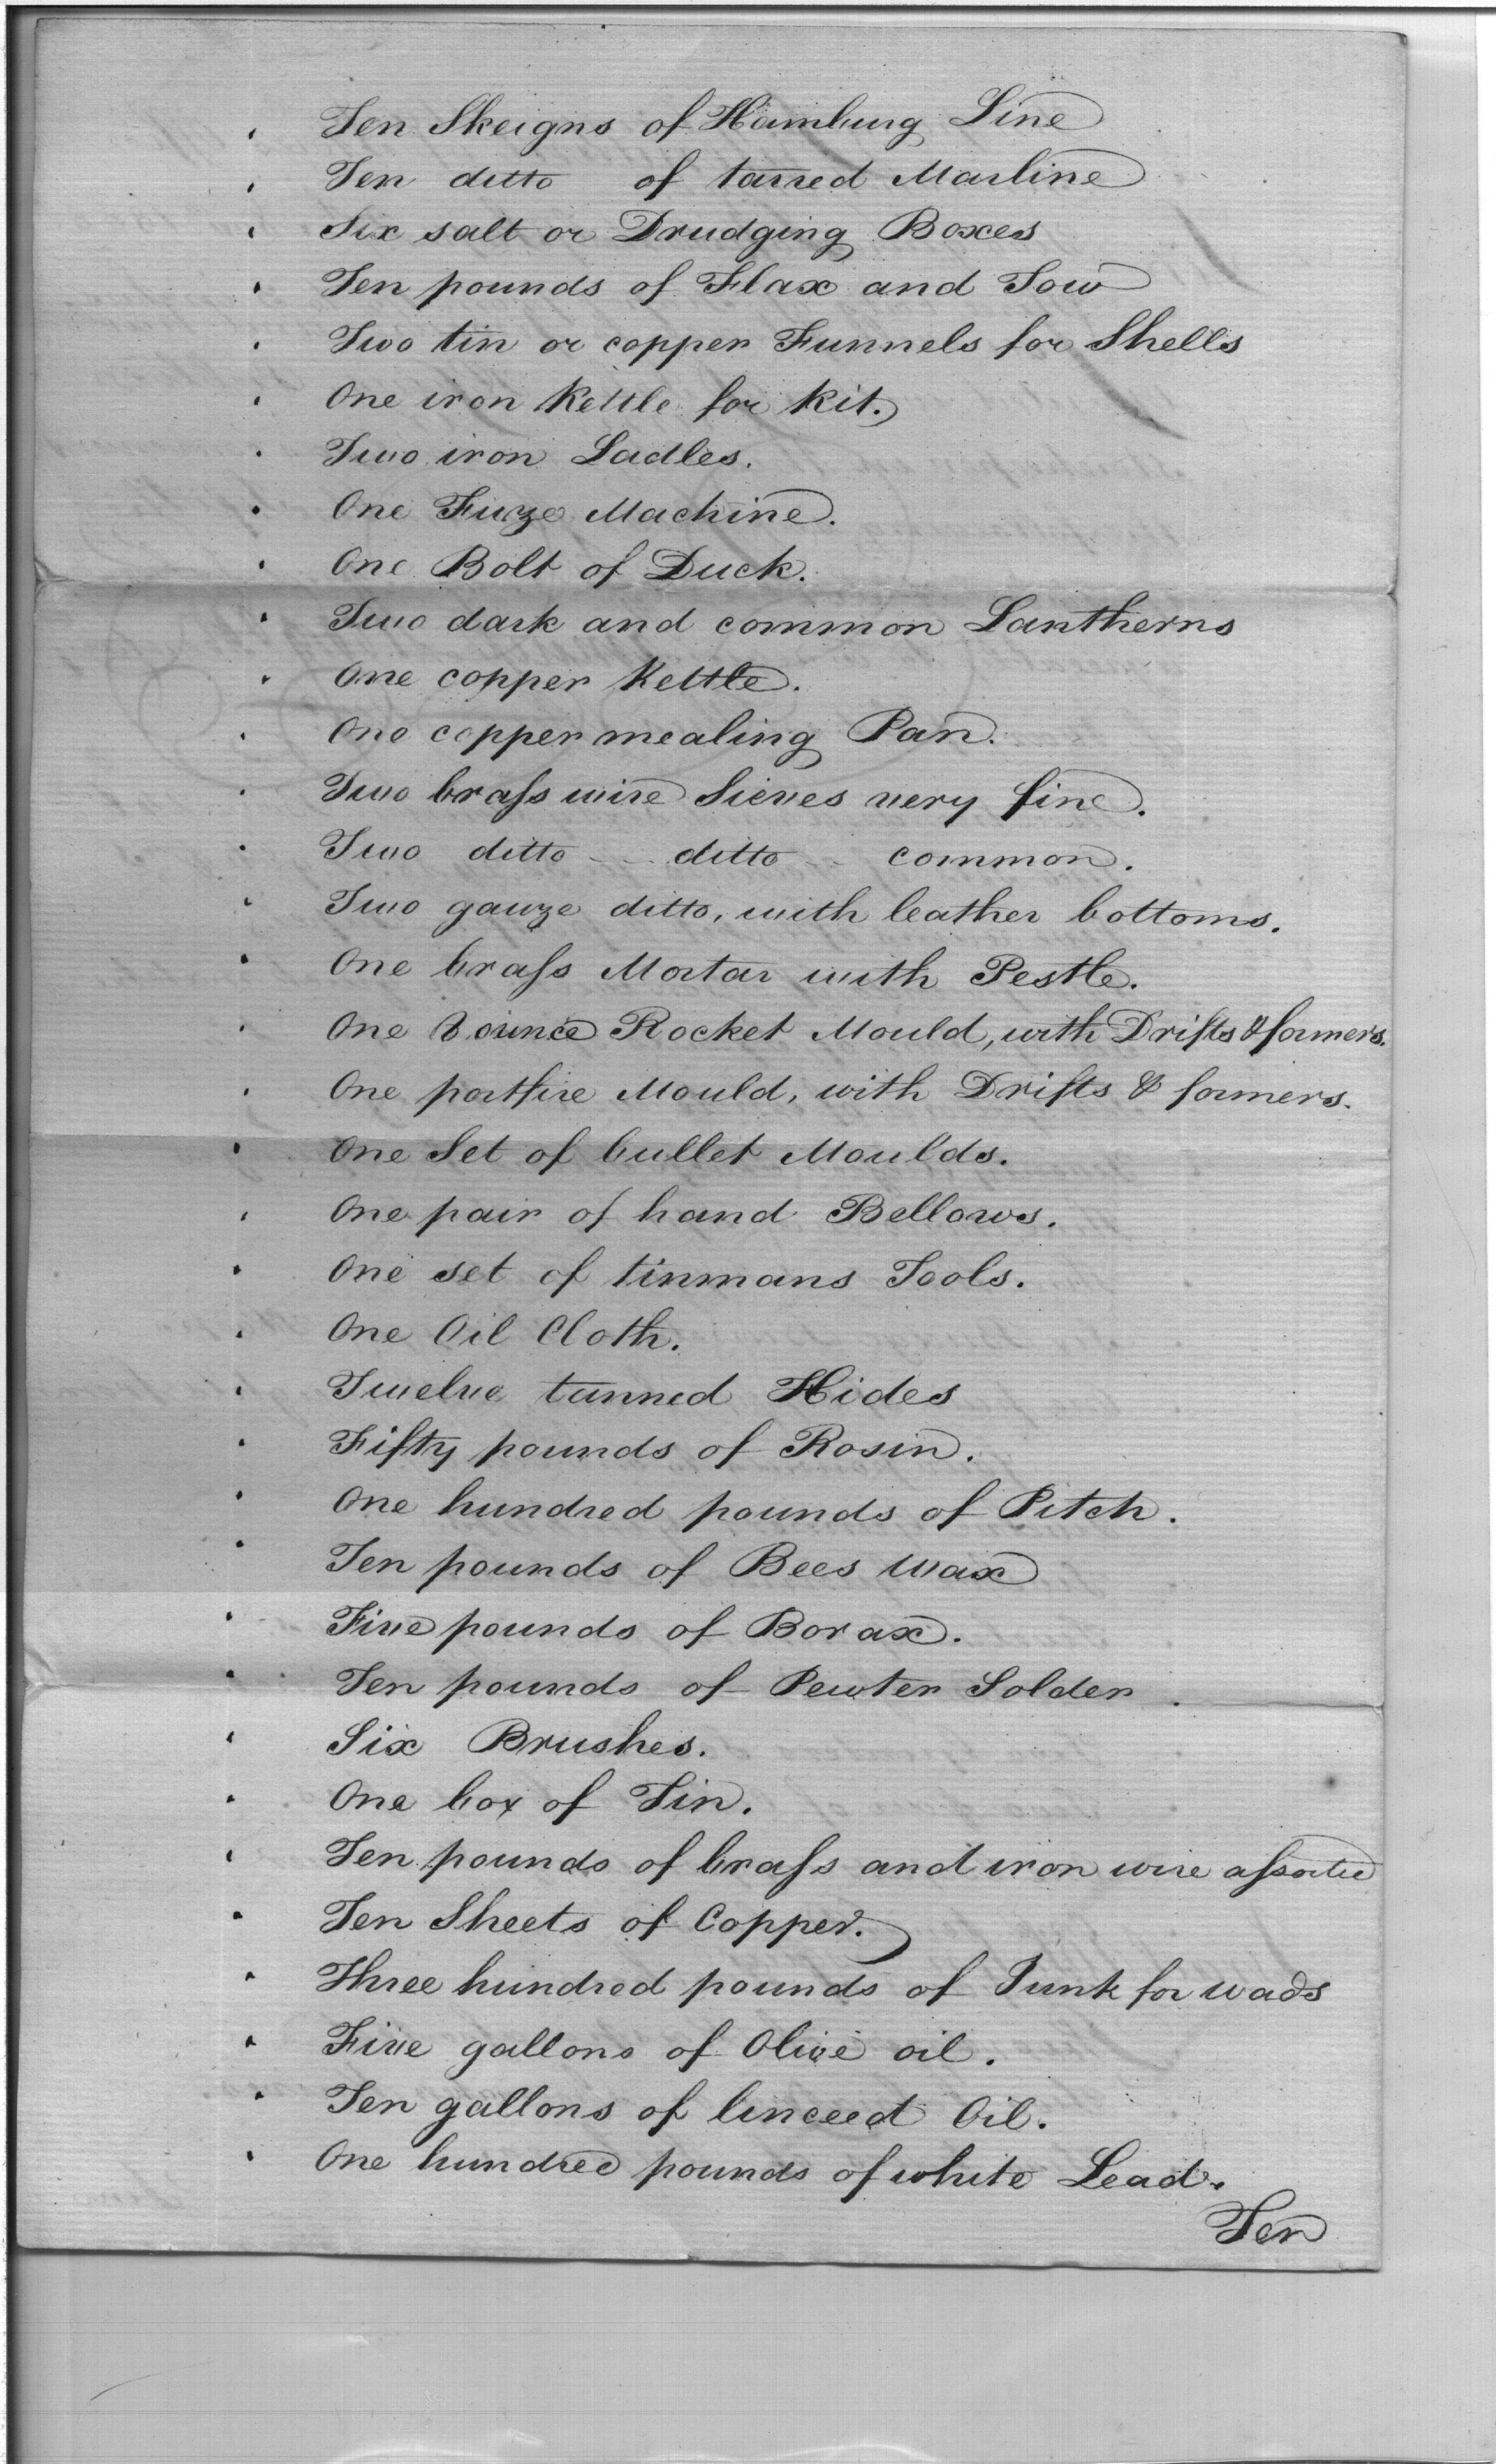 Ten Skeigns of Hamburg Line
Ten ditto of tarred Marline
Six salt or Drudging Boxes
Ten pounds of Flax and Tow
Two tin or copper Funnels for Shells
One iron Kettle for Kit.
Two iron Ladles.
One Fuze Machine.
One Bolt of Duck.
Two dark and common Lantherns
One copper Kettle.
One copper mealing Pan.
Two brass wire Sieves very fine.
Two ditto - - ditto - - common.
Two gauze ditto, with leather bottoms.
One brass Mortar with Pestle.
One 8 ounce Rocket Mould, with Drifts & formers.
One portfire Mould, with Drifts & formers.
One Set of bullet Moulds.
One pair of hand Bellows.
One set of tinmans Tools.
One Oil Cloth.
Twelve tanned Hides
Fifty pounds of Rosin.
One hundred pounds of Pitch.
Ten pounds of Bees Wax
Five pounds of Borax.
Ten pounds of Pewter Solder.
Six Brushes.
One box of Tin.
Ten pounds of brass and iron wire assorted
Ten Sheets of Copper.
Three hundred pounds of Junk for wads
Five gallons of Olive oil.
Ten gallons of linceed Oil.
One hundred pounds of white Lead.
Ten